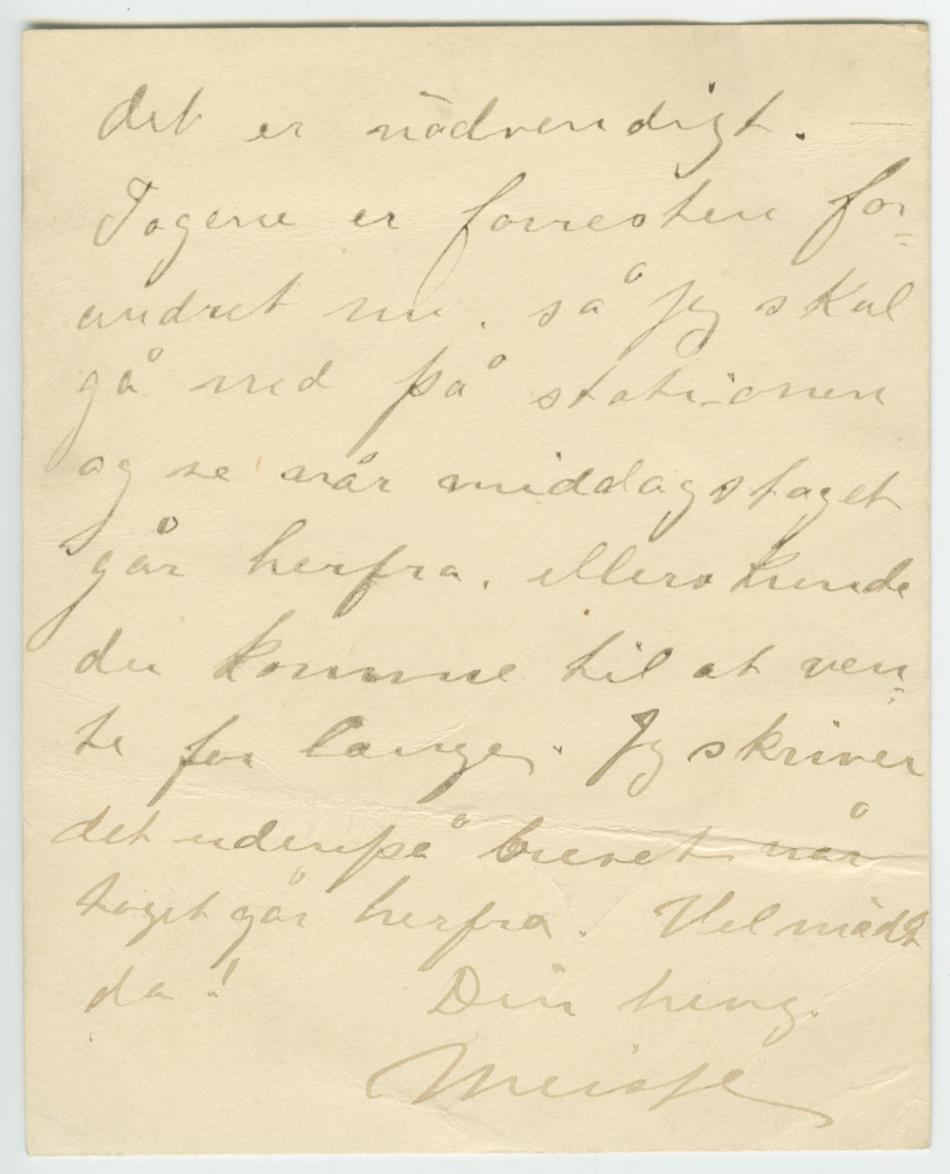 det er nödvendigt. —
Togene er forresten for=
andret nu. så jeg skal
gå ned på stationen
og se når middagstoget
går herfra. ellers kunde
du komme til at ven=
te for længe. Jeg skriver
det udenpå brevet når
toget går herfra. Vel mödt
da! Din heng.